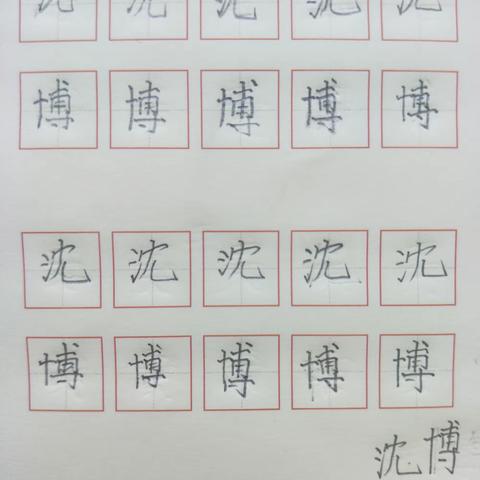 沈 沈 沈 沈 沈
博 博 博 博 博
沈 沈 沈 沈 沈
博 博 博 博 博
沈博